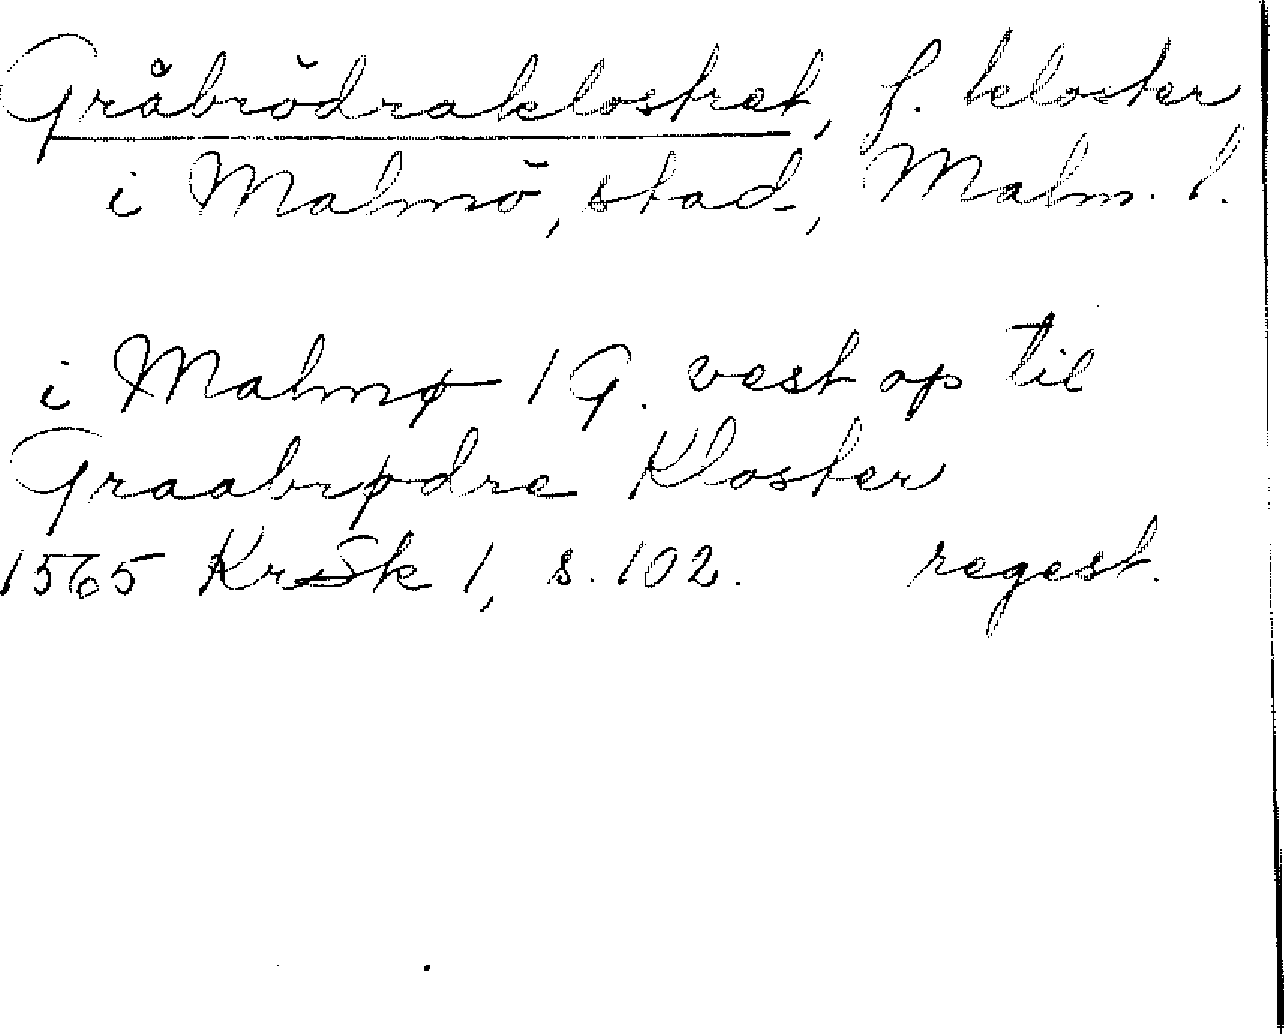 Gråbrödraklostret, f. kloster
i Malmö, stad, Malm. l.
i Malmø 1 G. vest op til
Graabrødre Kloster
1565 KrSk 1, s. 102. regest.